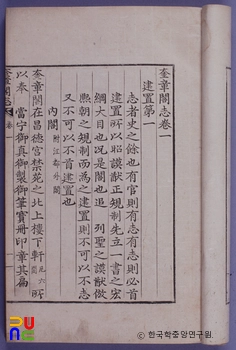 奎章閣志卷一
建置第一
志者史之餘也有官則有志有志則必首
建置所以昭謨猷正規制先立一書之宏
綱大目也況是閣也追 列聖之謨猷倣
熙朝之規制而爲之建置則不可以不志
又不可以不首建置也
內閣 附江都外閣
奎章閣在昌德宮禁苑之北上樓下軒
以奉 當宁御眞御製御筆寶冊印章其扁
奎章閣志
卷一
한국학중앙연구원